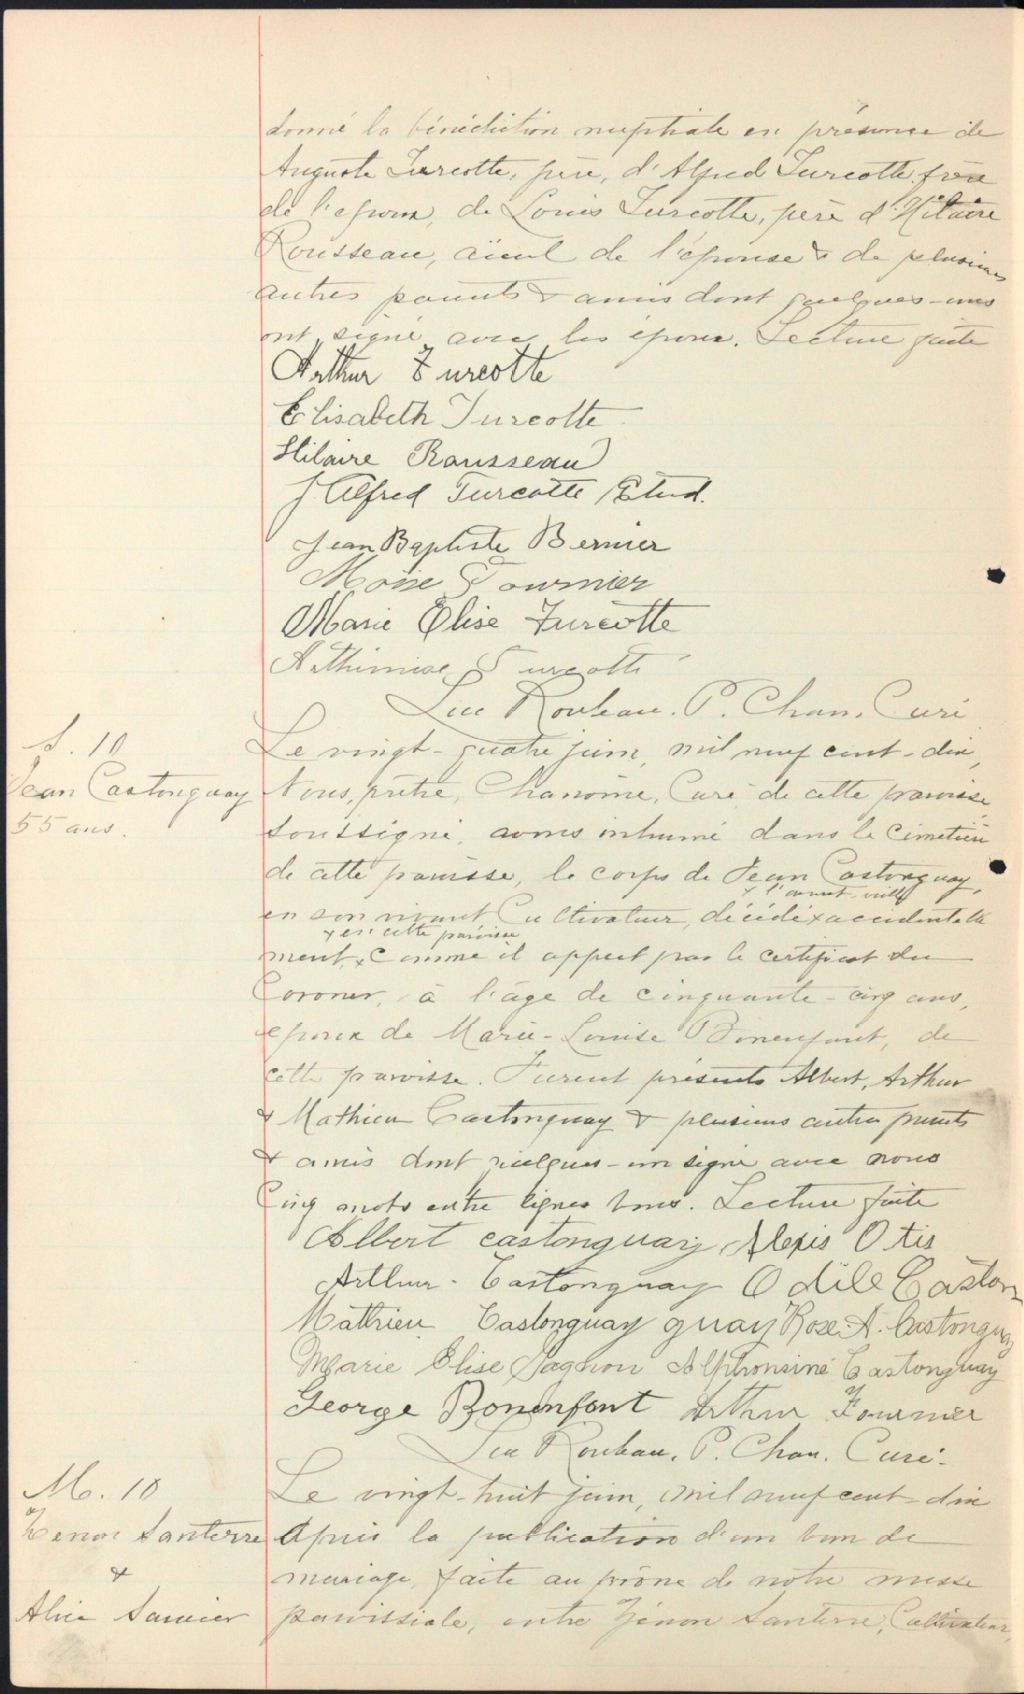 donné la bénédiction nuptiale en présence de
Auguste Turcotte, père, d'Alfred Turcotte frère
de l'époux, de Louis Turcotte, père d'Hilaire
Rousseau, aïeul de l'épouse & de plusieurs
autres parents & amis dont quelques-uns
ont signé avec les époux. Lecture faite
Arthur Turcotte
Elisabeth Turcotte
Hilaire Rousseau
J Alfred Turcotte Etud.
Jean Baptiste Bernier
Moïse Fournier
Marie Elise Turcotte
Arthimise Turcotte
Luc Rouleau. P. Chan. Curé
S. 10
Jean Castonguay
55 ans.
Le vingt-quatre juin, mil neuf cent-dix,
Nous, prêtre, Chanoine, Curé de cette paroisse
soussigné, avons inhumé dans le Cimetière
de cette paroisse, le corps de Jean Castonguay,
x l'avant-veille
en son vivant Cultivateur, décédé x accidentelle
x en cette paroisse
ment, x comme il appert par le certificat du
Coroner, à l'âge de cinquante-cinq ans,
époux de Marie-Louise Bonenfant, de
cette paroisse. Furent présents Albert, Arthur
& Mathieu Castonguay & plusieurs autres parents
& amis dont quelques-un signé avec nous
Cinq mots entre lignes bons. Lecture faite
Albert castonguay Alexis Otis
Arthur Castonguay Odile Caston
Mathieu Castonguay guay Rose-A. Castonguay
Marie Elise Gagnon Alphonsine Castonguay
George Bonenfant Arthur Fournier
Luc Rouleau. P. Chan. Curé.
M. 10
Zenon Santerre
&
Alice
Le vingt-huit juin, mil neuf cent-dix
Après la publication d'un ban de
mariage, faite au prône de notre messe
paroissiale, entre Zénon Santerre, Cultivateur,